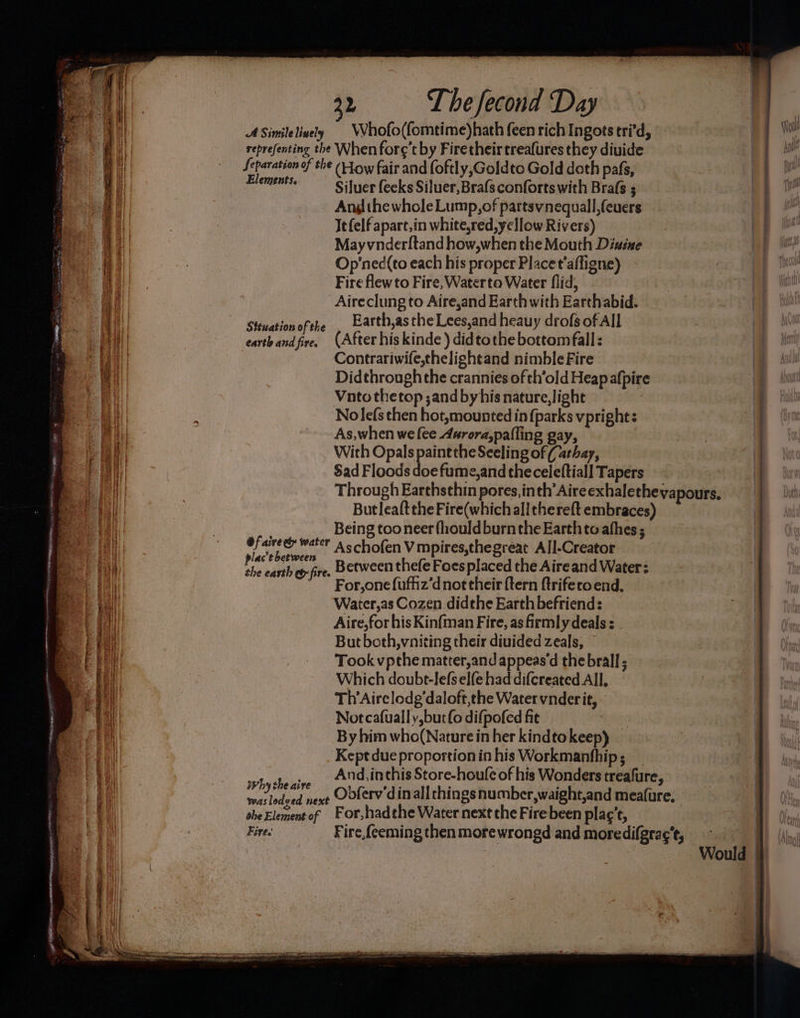 32 The ſecond Day
A Simile liuely
repreſenting the
ſeparation of the
Elements.
Whoſo(ſomtime)hath ſeen rich Ingots tri'd,
When forç't by Fire their treaſures they diuide
(How fair and ſoftly,Gold to Gold doth paſs,
Siluer ſeeks Siluer,Braſs conſorts with Braſs ;
And the whole Lump,of parts vnequall,ſeuers
It ſelf apart,in white,red,yellow Rivers)
May vnderſtand how,when the Mouth Diuine
Op'ned(to each his proper Place t'aſſigne)
Fire flew to Fire,Water to Water ſlid,
Aire clung to Aire,and Earth with Earth abid.
Situation of the
earth and fire.
Earth,as the Lees,and heauy droſs of All
(After his kinde) did to the bottom fall:
Contrariwiſe,the light and nimble Fire
Did through the crannies of th'old Heap aſpire
Vnto the top ;and by his nature,light
No leſs then hot,mounted in ſparks vpright:
As,when we ſee Aurora,paſſing gay,
With Opals paint the Seeling of Cathay,
Sad Floods doe fume,and the celeſtiall Tapers
Through Earths thin pores,in th'Aire exhale the vapours.
But leaſt the Fire(which all the reſt embraces)
Being too neer ſhould burn the Earth to aſhes ;
Of aire & water
plac't between
the earth & fire.
As choſen Vmpires,the great All-Creator
Between theſe Foes placed the Aire and Water:
For,one ſuffiz'd not their ſtern ſtrife to end.
Water,as Cozen did the Earth befriend:
Aire,for his Kinſman Fire, as firmly deals:
But both,vniting their diuided zeals,
Took vp the matter,and appeas'd the brall ;
Which doubt-leſs elſe had diſcreated All.
Th'Aire lodg'd aloft,the Water vnder it,
Not caſually,but ſo diſpoſed fit
By him who(Nature in her kind to keep)
Kept due proportion in his Workmanſhip ;
And,in this Store-houſe of his Wonders treaſure,
Obſerv'd in all things number,waight,and meaſure.
Why the aire
was lodged next
the Element of
Fire.
For,had the Water next the Fire been plaç't,
Fire,ſeeming then more wrongd and more diſgraç't,
Would